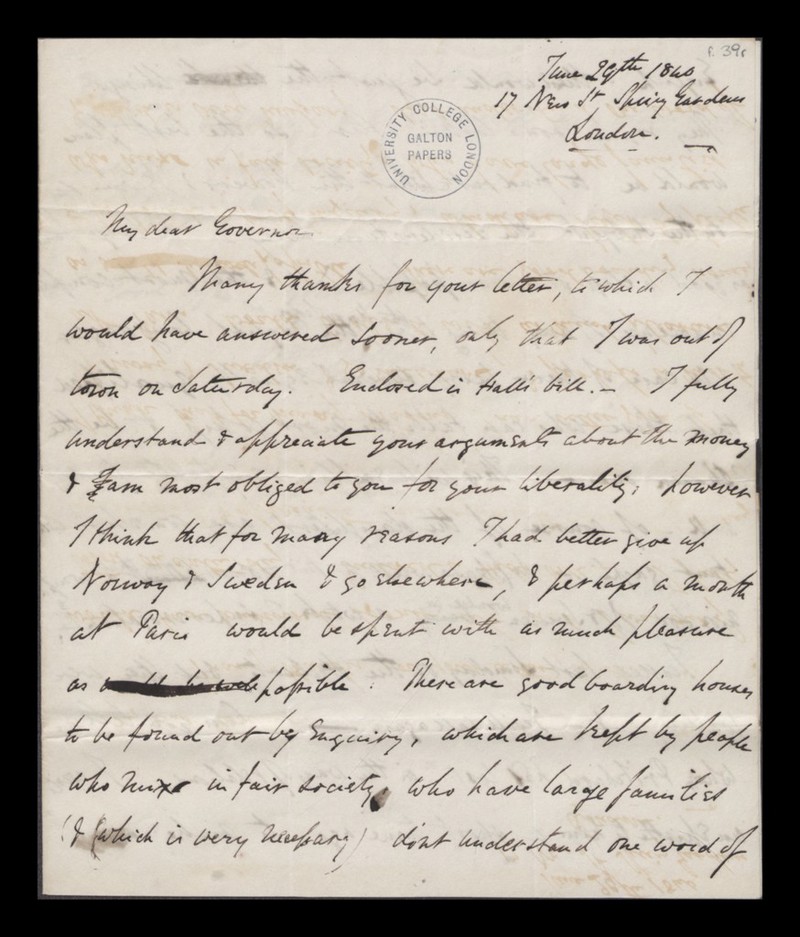 f. 39r
June 29th 1840
17 New St Spring Gardens
London.
UNIVERSITY COLLEGE LONDON
GALTON
PAPERS
My dear Governor
Many thanks for your letter, to which I
would have answered sooner, only that I was out of
town on Saturday. Enclosed is Hall's bill. — I fully
understand & appreciate your arguments about the money
& I am most obliged to you for your liberality, however
I think that for many reasons I had better give up
Norway & Sweden & go elsewhere, & perhaps a month
at Paris would be spent with as much pleasure
as possible. There are good boarding houses
to be found out by Enquiry, which are kept by people
who mix in fair society, who have large families
(& (which is very necessary) dont understand one word of